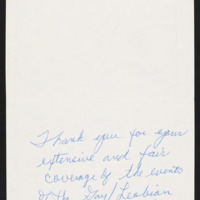 Thank you for your
extensive and fair
coverage of the events
of the Gay/Lesbian